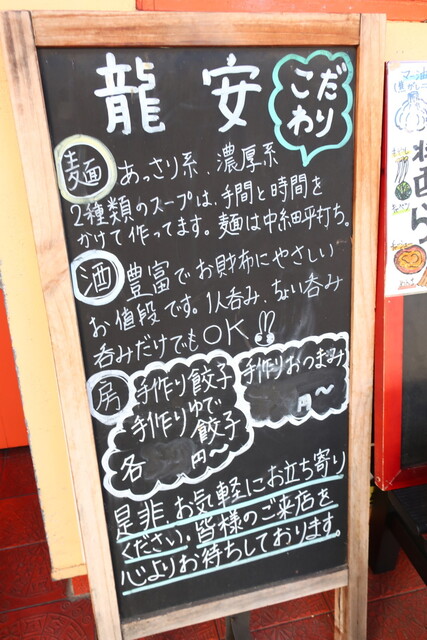 龍安
こだわり
麺 あっさり系、濃厚系
2種類のスープは、手間と時間を
かけて作ってます。麺は中細平打ち。
酒 豊富でお財布にやさしい
お値段です。1人呑み、ちょい呑み
呑みだけでもOK
房 手作り餃子
手作りゆで餃子
各 円〜
手作りおつまみ
円〜
是非、お気軽にお立ち寄り
ください。皆様のご来店を
心よりお待ちしております。
マー油